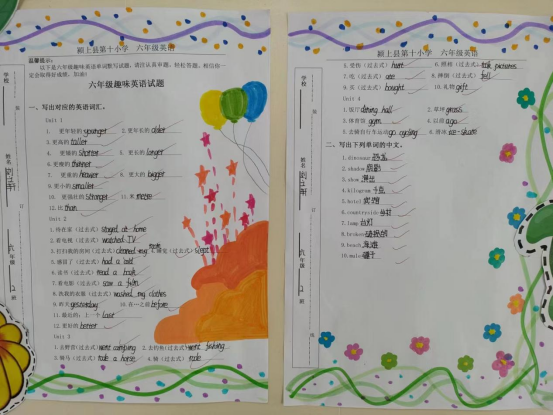 颍上县第十小学 六年级英语
温馨提示:
以下是六年级趣味英语单词默写试题，请仔细认真审题、轻松答题，相信你一定会取得好成绩，加油！
六年级趣味英语试题
一、写出对应的英语词汇。
Unit 1
1. 更年轻的 younger 2.更年长的 older
3.更高的 taller
4. 更矮的 shorter 5. 更长的 longer
6.更瘦的 thinner
7. 更重的 heavier 8. 更大的 bigger
9.更小的 smaller
10. 更强壮的 stronger 11.米 metre
12.比 than
Unit 2
1.待在家（过去式）stayed at home
2.看电视（过去式）watched TV
3.打扫我的房间（过去式）cleaned my room 4.睡觉（过去式）slept
5.感冒了（过去式）had a cold
6.看书（过去式）read a book
7.看电影（过去式）saw a film
8.洗我的衣服（过去式）washed my clothes
9.昨天 yesterday 10.在…之前 before
11.最近的；上一个 last
12.更好的 better
Unit 3
1.去野营（过去式）went camping 2.去钓鱼（过去式）went fishing
3.骑马（过去式）rode a horse 4.骑（过去式）rode
学校
姓名
六年级 2 班
颍上县第十小学 六年级英语
5.受伤（过去式）hurt 6.照相（过去式）took pictures
7.吃（过去式）ate 8.摔倒（过去式）fell
9.买（过去式）bought 10.礼物 gift
Unit 4
1.饭厅 dining hall 2.草坪 grass
3.体育馆 gym 4.以前 ago
5.去骑自行车运动 go cycling 6.滑冰 ice-skate
二、写出下列单词的中文。
1.dinosaur 恐龙
2.shadow 阴影
3.show 演出
4.kilogram 千克
5.hotel 宾馆
6.countryside 乡村
7.lamp 台灯
8.broken 破损的
9.beach 海滩
学校
姓名
六年级 2 班